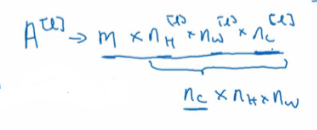 A^[l] → m × n_H^[l] × n_W^[l] × n_c^[l]
n_c × n_H × n_W